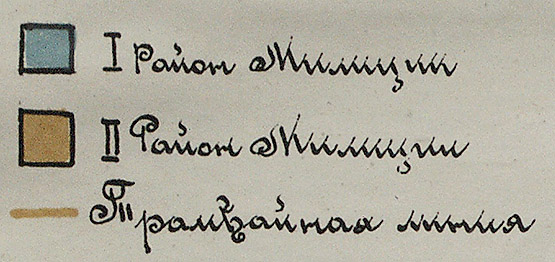 I Район Милиции
II Район Милиции
Трамвайная линия